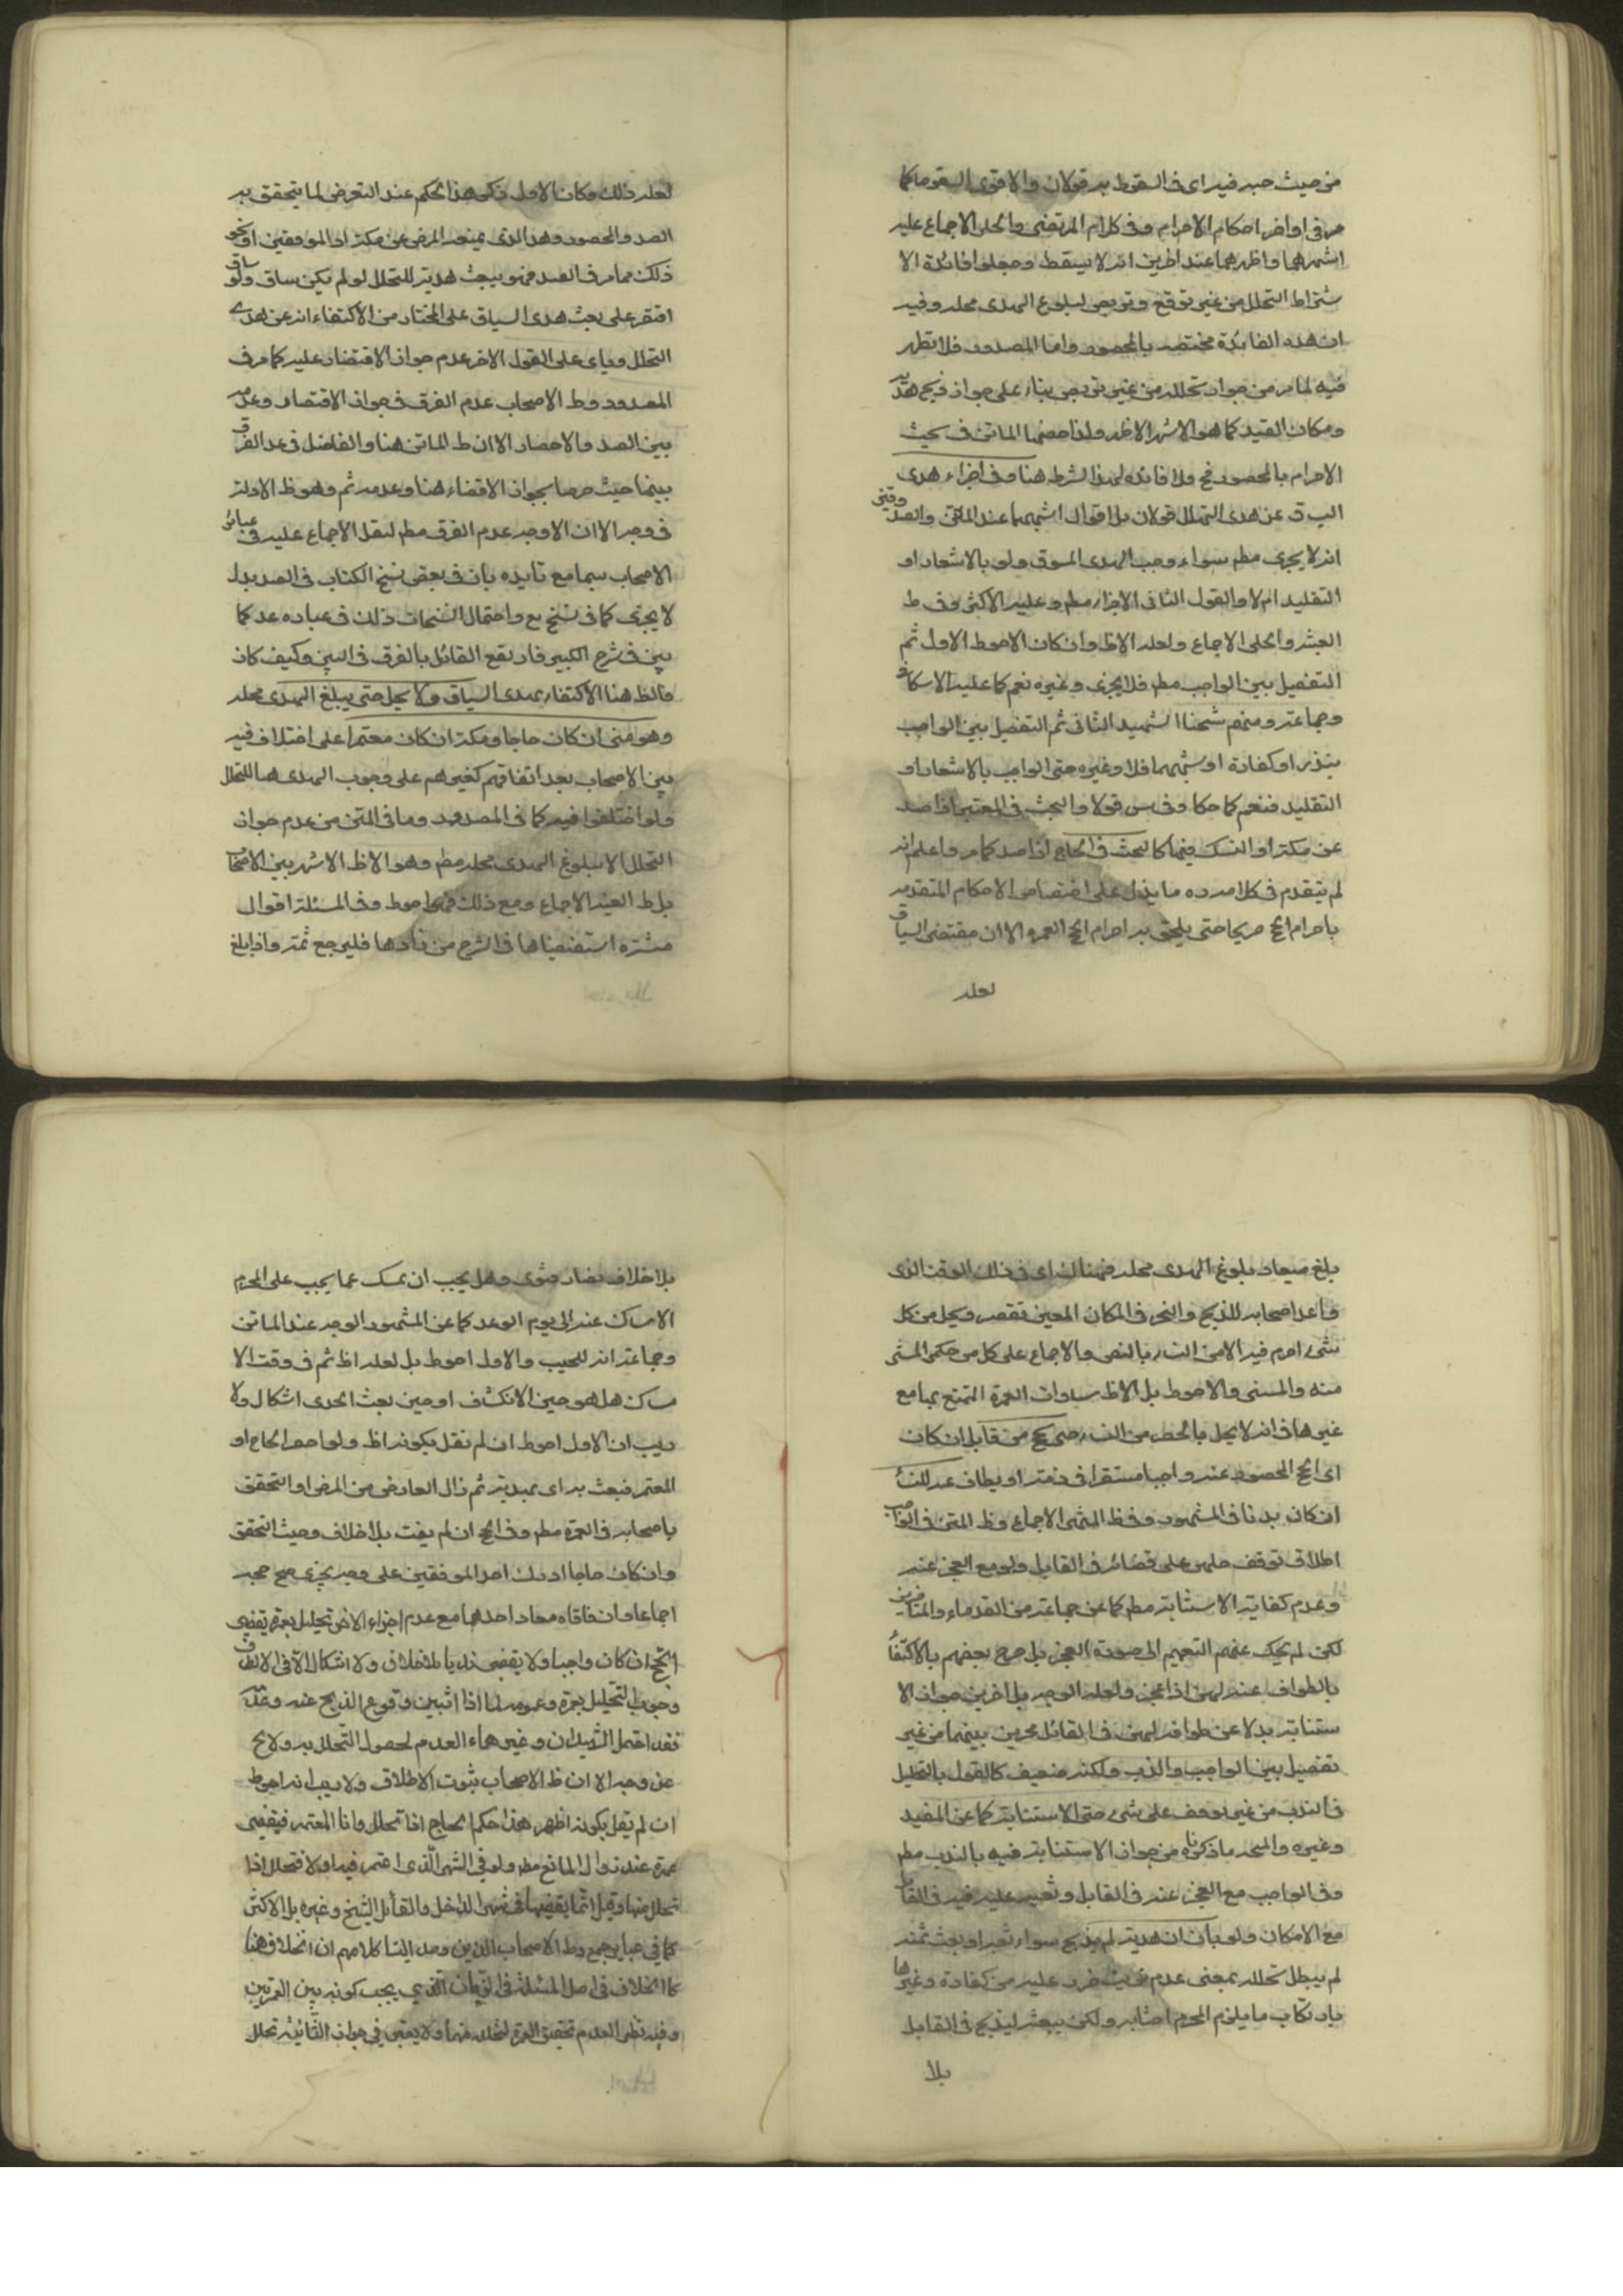 من حيث حبه فيه اى فى السقوط به قولان والاقوى السقوط كما
مر فى اواخر احكام الاحرام وفى كلام المرتضى والحلى الاجماع عليه
اشهرهما واظهرهما عند اخرين انه لا يسقط وجعلوا فائدة الا
شتراط التحلل من غير توقع وتربص لبلوغ الهدى محله وفيه
ان هذه الفائدة مختصه بالمحصور واما المصدود فلا تظهر
فيه لما مر من جواز تحلله من غير تربص بناء على جواز ذبح هديه
ومكان القيد كما هو الاشهر الاظهر ولذا خصها الماتن فى بحث
الاحرام بالمحصور فح فلا فائده لهذا الشرط هنا وفى اجزاء هدى
السياق عن هدى التحلل قولان بل اقوال اشبههما عند الماتن والصدوقين
انه لا يجزى مطم سواء وجب الهدى المسوق ولو بالاشعار او
التقليد ام لا والقول الثانى الاجزاء مطم وعليه الاكثر وفى ظ
الغنيه والحلى الاجماع ولعله الاظ وان كان الاحوط الاول ثم
التفصيل بين الواجب مطم فلا يجزى وغيره نعم كما عليه الاسكافى
وجماعة ومنهم شيخنا الشهيد الثانى ثم التفصيل بين الواجب
بنذر او كفارة او شبههما فلا وغيره حتى الواجب بالاشعار او
التقليد فنعم كما حكا وفى س قولا والبحث فى المعتمر اذا صد
عن مكة او النسك فيها كالبحث فى الحاج اذا صد كما مر واعلم انه
لم يتقدم فى كلامه ره ما يدل على اختصاص الاحكام المتقدمه
باحرام الحج صريحا حتى يلحق به احرام الحج العمره الا ان مقتضى السياق
لعله
لعله ذلك وكان الاول ذكر هذا الحكم عند التعرض لما يتحقق به
الصد والحصور وهو الذى يمنعه المرض عن مكة او الموقفين او نحو
ذلك مما مر فى الصد فهو يبعث هديه للتحلل لو لم يكن ساق ولو ساق
اقتصر على بعث هدى السياق على المختار من الاكتفاء به عن هدى
التحلل وياى على القول الاخر عدم جواز الاقتصار عليه كما مر فى
المصدود وظ الاصحاب عدم الفرق فى جواز الاقتصار وعدمه
بين الصد والاحصار الا ان ظ الماتن هنا والفاضل فى عد الفرق
بينهما حيث صرحا بجواز الاقتصار هنا وعدمه ثم وهو ظ الادلة
فى وجه الا ان الاوجه عدم الفرق مطم لنقل الاجماع عليه فى عبائر
الاصحاب سيما مع تايده بان فى بعض نسخ الكتاب فى الصد بدل
لا يجزى كما فى نسخ يع واحتمال النسخات ذلك فى عباره عد كما
بين فى شرح الكبير فارتفع القائل بالفرق فى البين وكيف كان
فالظ هنا الاكتفاء بهدى السياق ولا يحل حتى يبلغ الهدى محله
وهو منى ان كان حاجا ومكة ان كان معتمرا على اختلاف فيه
بين الاصحاب بعد اتفاقهم كغيرهم على وجوب الهدى هنا للتحلل
ولو اختلفوا فيه كما فى المصدود وما فى المتن من عدم جواز
التحلل الا ببلوغ الهدى محله مطم وهو الاظ الاشهر بين الاصحاب
بل ظ الغنيه الاجماع ومع ذلك فهو احوط وفى المسئلة اقوال
منتشره استقصيناها فى الشرح من ارادها فليرجع ثمة واذا بلغ
بلغ ميعاد بلوغ الهدى محله فهناك اى فى ذلك الوقت الذى
واعد اصحابه للذبح والنحر فى المكان المعين تقصر ويحل من كل
شىء احرم فيه الا من النساء بالنص والاجماع على كل من حكمى المستثنى
منه والمستثنى والاحوط بل الاظ مساوات العمرة التمتع بها مع
غيرها فى انه لا يحل بالحصر من النساء حتى يحج من قابل ان كان
اى الحج المحصور عنه واجبا مستقرا فى ذمته او يطاف عنه للنساء
ان كان ندبا فى المشهور وفى ظ المنتهى الاجماع وظ المتن فى الواجب
اطلاق توقف حلهن على قضائه فى القابل ولو مع العجز عنه
وعدم كفاية الاستنابة مطم كما عن جماعة من القدماء والمتاخرين
لكن لم يحك عنهم التعميم الى صورة العجز بل صرح بعضهم بالاكتفاء
بالطواف عنه لهن اذا عجز ولعله الوجه بل اخرين جواز الا
ستنابة بدلا عن طوافه لهن فى القائل مخيرين بينهما من غير
تفصيل بين الواجب والندب ولكنه ضعيف كالقول بالتحليل
فى الندب من غير توقف على شىء حتى الاستنابة كما عن المفيد
وغيره والمتجه ما ذكرناه من جواز الاستنابة فيه بالندب مطم
وفى الواجب مع العجز عنه فى القابل وتعيينه عليه فيه فى القابل
مع الامكان ولو بان ان هديه لم يذبح سواء تعبد او بعث ثمنه
لم يبطل تحلله بمعنى عدم ترتب ضرر عليه من كفارة وغيرها
بارتكاب ما يلزم المحرم اجتنابه ولكن يبعثه ليذبح فى القابل
بلا
بلا خلاف نصا وفتوى وهل يجب ان يمسك عما يجب على المحرم
الامساك عنه الى يوم الوعد كما عن المشهور الوجه عند الماتن
وجماعة انه لا يجب والاول احوط بل لعله اظ ثم فى وقت الا
مساك هل هو حين الانكشاف او حين بعث الهدى اشكال ولا
ريب ان الاول احوط ان لم نقل بكونه اظ ولو احصر الحاج او
المعتمر فبعث به اى بهديه ثم زال العارض من المرض او التحقق
باصحابه فى العمرة مطم وفى الحج ان لم يفت بلا خلاف وحيث التحقق
وان كان حاجا ادرك احد الموقفين على وجه يجزى صح حجه
اجماعا وان فاتاه معا او احدهما مع عدم اجزاء الاخر تحليل بعمرة يقضى
الحج ان كان واجبا ولا يقضى ندبا بلا خلاف ولا اشكال الا فى الاطلاق
وجوب التحليل بعمرة وعمومه لما اذا تبين وقوع الذبح عنه وعدمه
فقد احتمل الشهيدان وغيرهما العدم لحصول التحلل به ولا يخ
عن وجه الا ان ظ الاصحاب ثبوت الاطلاق ولا ريب انه احوط
ان لم يقل بكونه اظهر هذا حكم الحاج اذا تحلل واما المعتمر فيقضى
عمرة عند زوال المانع مطم ولو فى الشهر الذى اعتمر فيه اولا فتحلل اذا
تحلل منها وقيل انما يقضيها فى شهر الداخل والقائل الشيخ وغيره بل الاكثر
كما فى عبارة جمع وظ الاصحاب الذين وصل الينا كلامهم ان الخلاف هنا
كالخلاف فى اصل المسئلة فى الزمان الذى يجب كونه بين العمرتين
وفيه نظر لعدم تحقق العمرة لتحلله منها ولا يعتبر فى جواز الثانيه تحلل